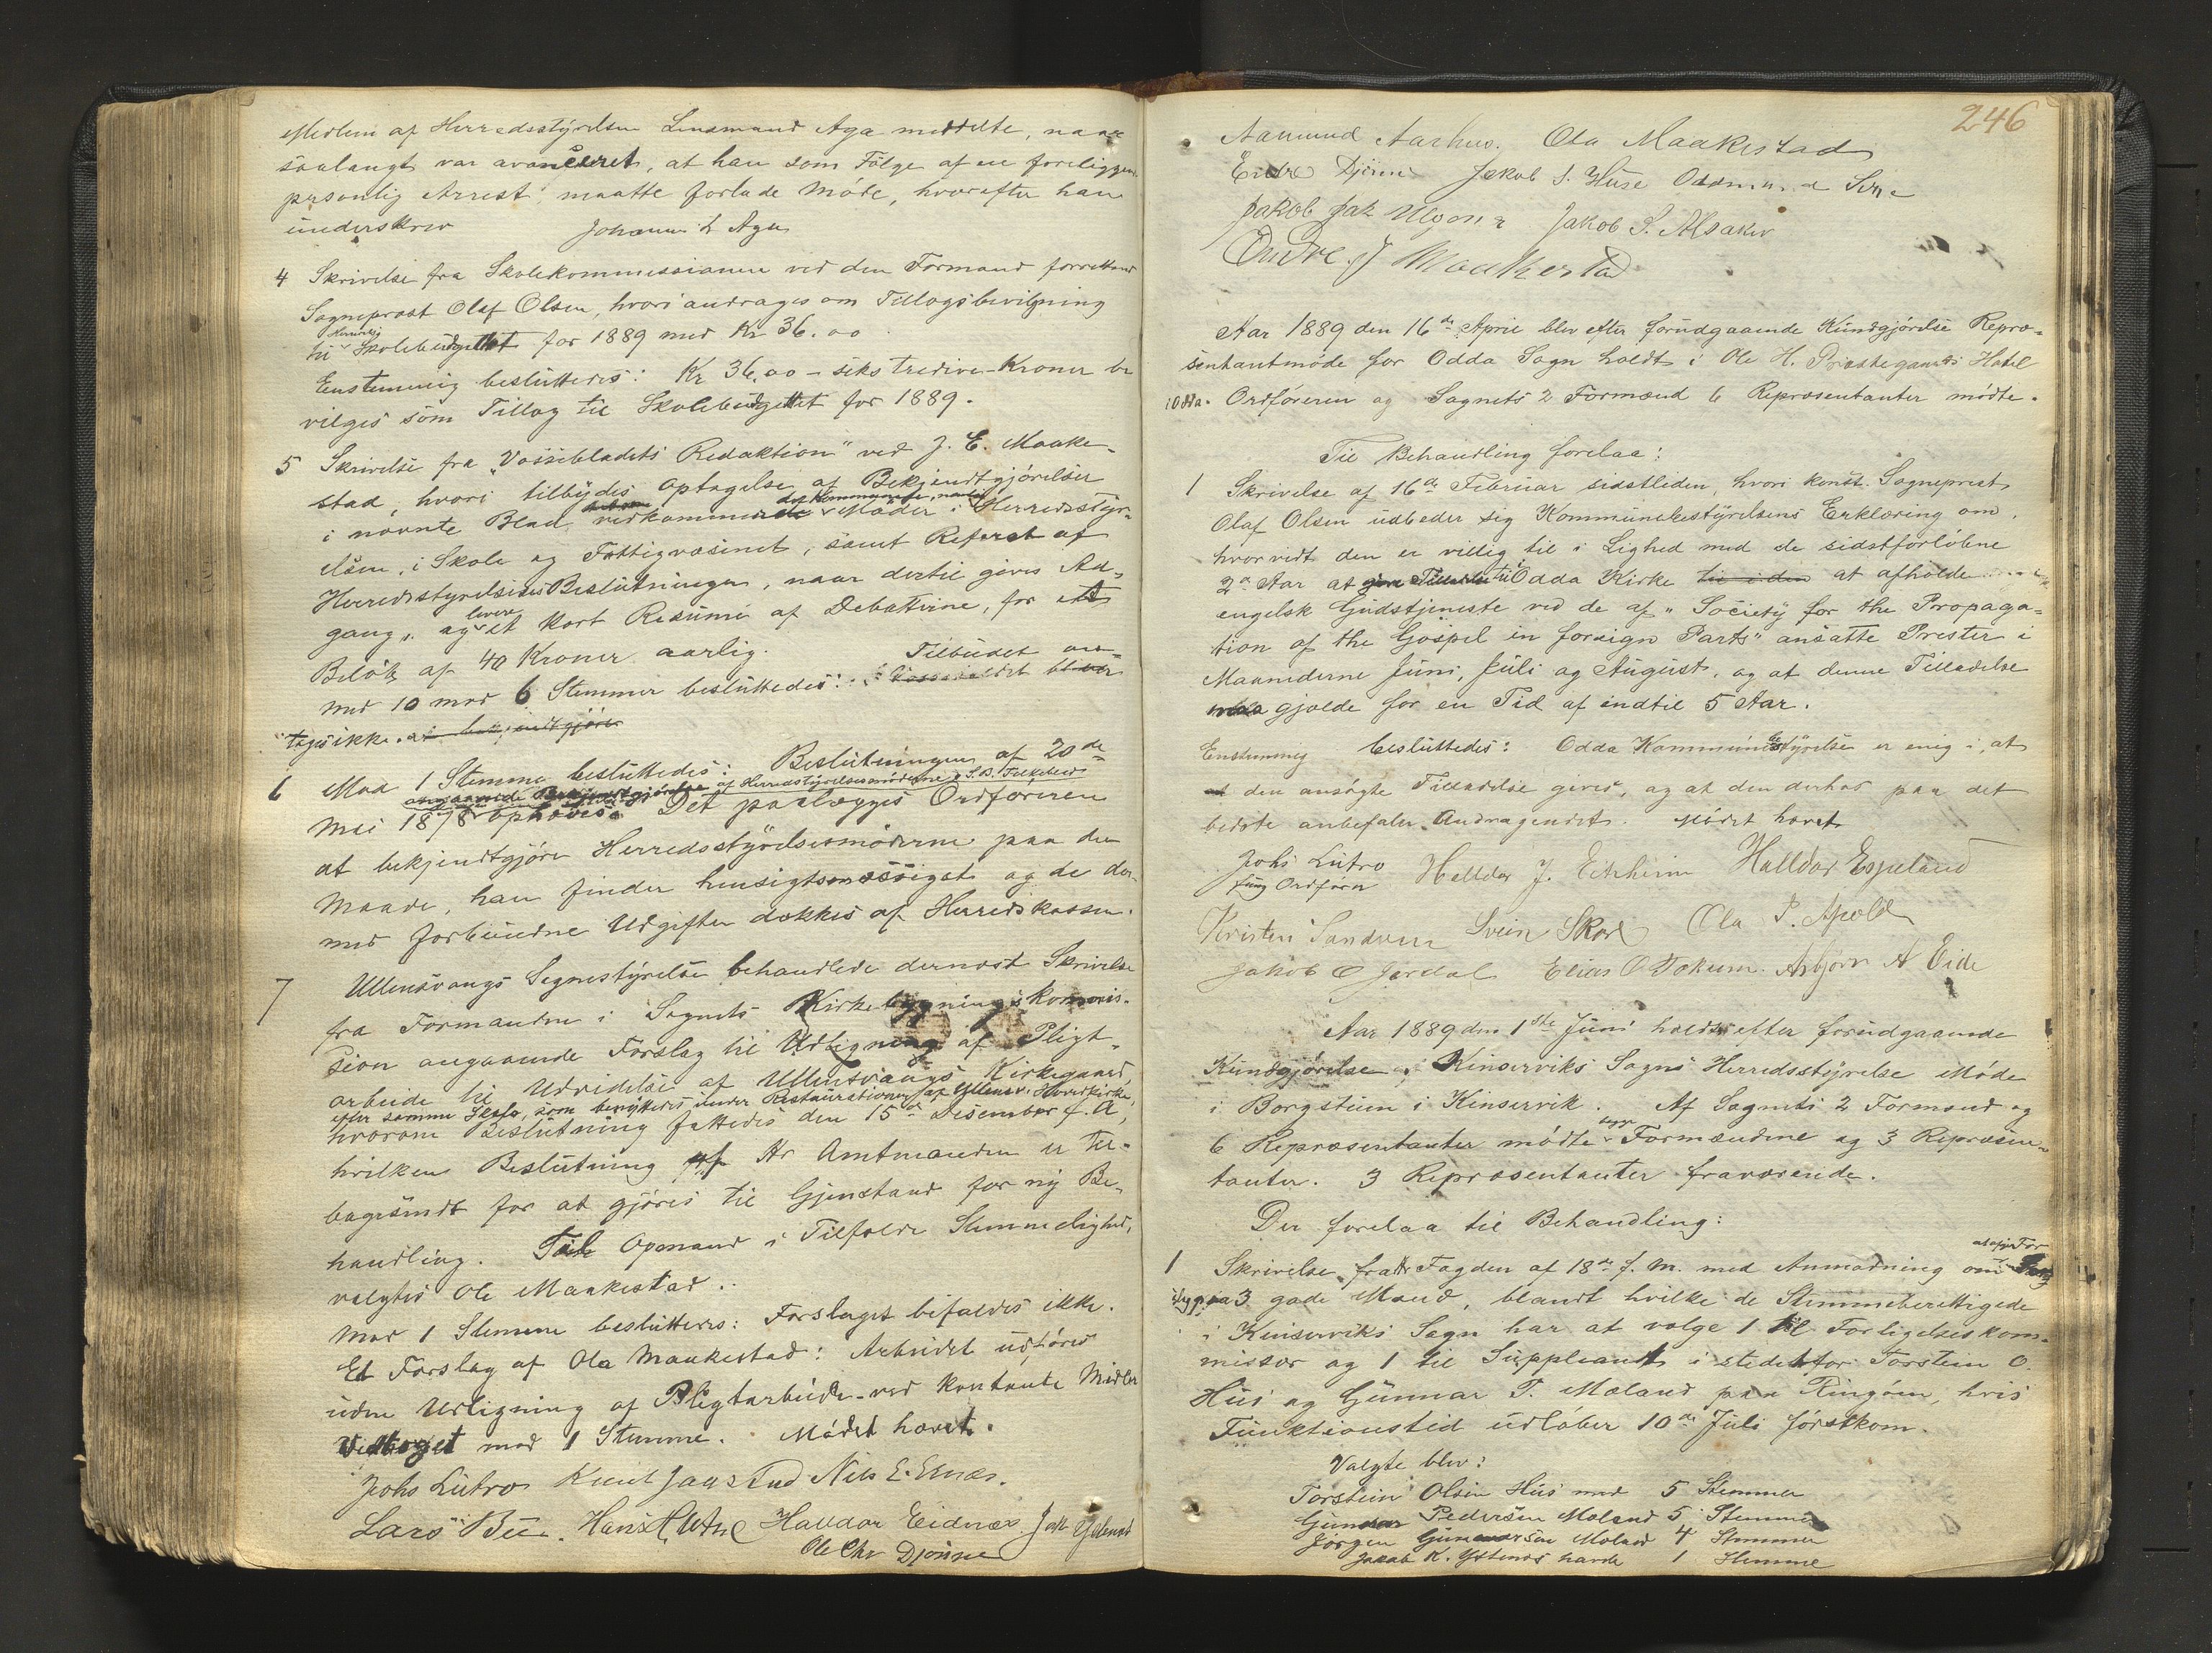 Medlem af Herredsstyrelsen Lensmand Aga meddelte, naar
saalangt var avanceret, at han som Fölge af en foreliggende
personlig Arrest maatte forlade Möde, hvorefter han
underskrev Johannes L Aga
4 Skrivelse fra Skolekommissionen ved den Formand
Sogneprest Olaf Olsen, hvori andrages om Tillægsbevilgning
til Skolebudgettet for 1889 med Kr 36.00
Enstemmig besluttedes: Kr 36,00 – seks tredive – Kroner be
vilges som Tillæg til Skolebudgettet for 1889.
5 Skrivelse fra "Vossebladets Redaktion" ved J. E. Maake-
stad, hvori tilbydes Optagelse af Bekjendtgjörelser
i nævnte Blad vedkommende Möder i Herredsstyr-
elsen, i Skole og Fattigvæsenet, samt Referat af
Herredsstyrelsens Beslutninger, naar dertil gives Ad-
gang, og levere et kort Resumé af Debatterne, for et
Belöb af 40 Kroner aarlig.
Med 10 mod 6 Stemmer besluttedes: Tilbudet an-
tages ikke.
6 Mod 1 Stemme besluttedes: Beslutningen af 20de
angaaende Bekjendtgjörelse af Herredsstyrelsesmöderne i S. B. Folkeblad
Mai 1878 ophæves. Det paalægges Ordföreren
at bekjendtgjöre Herredsstyrelsesmöderne paa den
Maade, han finder hensigtsmæssigst og de der-
med forbundne Udgifter dækkes af Herredskassen.
7 Ullensvangs Sognestyrelse behandlede dernæst Skrivelse
fra Formanden i Sognets Kirkebygningskommis-
sion angaaende Forslag til Udligning af Pligt-
arbeide til Udvidelse af Ullensvangs Kirkegaard
efter samme Skala, som benyttedes under Restaurationen af Ullensv. Hovedkirke,
hvorom Beslutning fattedes den 15de Desember f. A,
hvilken Beslutning af Hr Amtmanden er til-
bagesendt for at gjöres til Gjenstand for ny Be-
handling. Til Opmand i Tilfælde Stemmelighed,
valgtes Ole Maakestad.
Mod 1 Stemme besluttedes: Forslaget bifaldes ikke.
Et Forslag af Ola Maakestad: Arbeidet udföres
uden Udligning af Pligtarbeide ved kontante Midler
Vedtaget mod 1 Stemme. Mödet hævet.
Johs Lutro Knut Jaastad Nils E. Ernæs.
Lars Bu. Hans Utne Halldor Eidnæs
Ole Chr Djönne
246
Aamund Aarhus. Ola Maakestad
Endre Djönne Jakob S. Huse Oddmund
Jakob Jak Jakob S. Alsaker
Endre J Maakestad
Aar 1889 den 16de April blev efter forudgaaende Kundgjörelse Repræ-
sentantmöde for Odda Sogn holdt i Ole H. Prestegaards Hotel
i Odda. Ordföreren og Sognets 2 Formænd 6 Repræsentanter mödte.
Til Behandling forelaa:
1 Skrivelse af 16de Februar sidstleden, hvori konst. Sogneprest
Olaf Olsen udbeder sig Kommunebestyrelsens Erklæring om
hvorvidt den er villig til i Lighed med de sidstforløbne
2de Aar at til Odda Kirke at afholde
engelsk Gudstjeneste ved de af "Society for the Propaga-
tion of the Gospel in foreign Parts" ansatte Prester i
Maanederne Juni, Juli og August, og at denne Tilladelse
maa gjælde for en Tid af indtil 5 Aar.
Enstemmig besluttedes: Odda Kommunestyrelse er enig i, at
den ansøgte Tilladelse gives, og at den derhos paa det
bedste anbefaler Andragendet. Mödet hævet
Johs Lutro Halldor J. Eitrheim Halldor Espeland
fung Ordförer
Kristen Sandven Svein Skare Ola P. Apold
Jakob O Jordal Elias O Tokeim. Asbjörn A Eide
Aar 1889 den 1ste Juni holdtes efter forudgaaende
Kundgjörelse i Kinserviks Sogns Herredsstyrelse Möde
i Borgstuen i Kinservik. Af Sognets 2 Formænd og
6 Repræsentanter mödte begge Formændene og 3 Repræsen-
tanter. 3 Repræsentanter fraværende.
Der forelaa til Behandling:
1 Skrivelse fra Hr Fogden af 18de f. M. med Anmodning om at afgive For
slag paa 3 gode Mænd, blandt hvilke de Stemmeberettigede
i Kinserviks Sogn har at vælge 1 til Forligelseskom-
missær og 1 til Suppleant i stedetfor Torstein O.
Hus og Gunnar P. Mæland paa Ringöen, hvis
Funktionstid udlöber 10de Juli förstkom.
Valgte blev:
Torstein Olsen Hus med 5 Stemmer
Gunnar Pedersen Mæland 5 Stemmer
Jörgen Gunnarsen Mæland 4 Stemmer
Jakob K. Ystenæs havde 1 Stemme